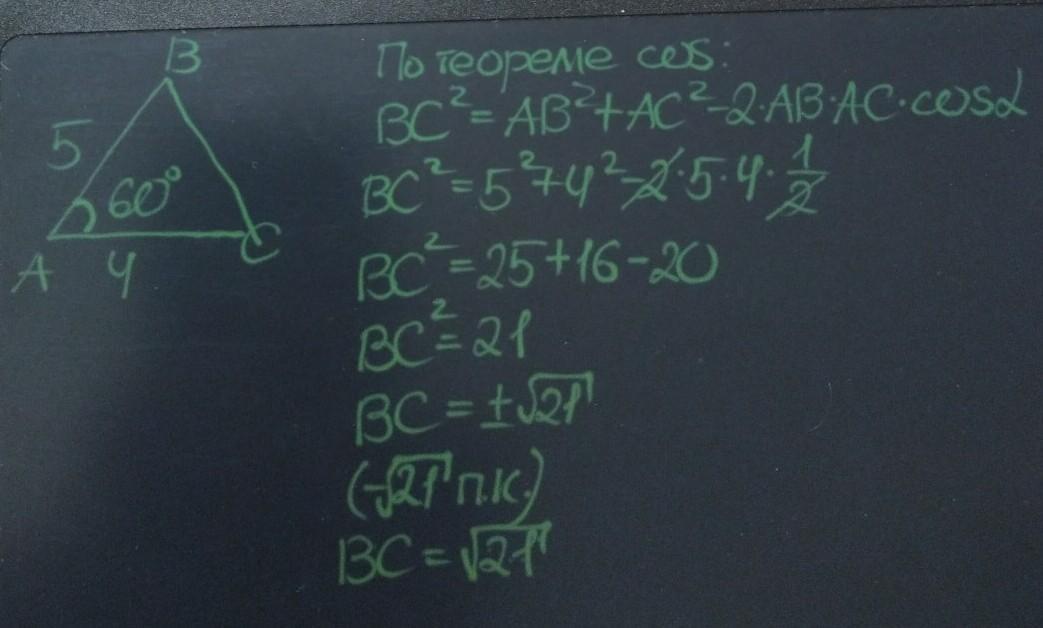 B
5
60°
A 4 C
По теореме cos:
BC² = AB² + AC² - 2·AB·AC·cosα
BC² = 5² + 4² - 2·5·4·1/2
BC² = 25 + 16 - 20
BC² = 21
BC = ±√21
(-√21 п.к.)
BC = √21